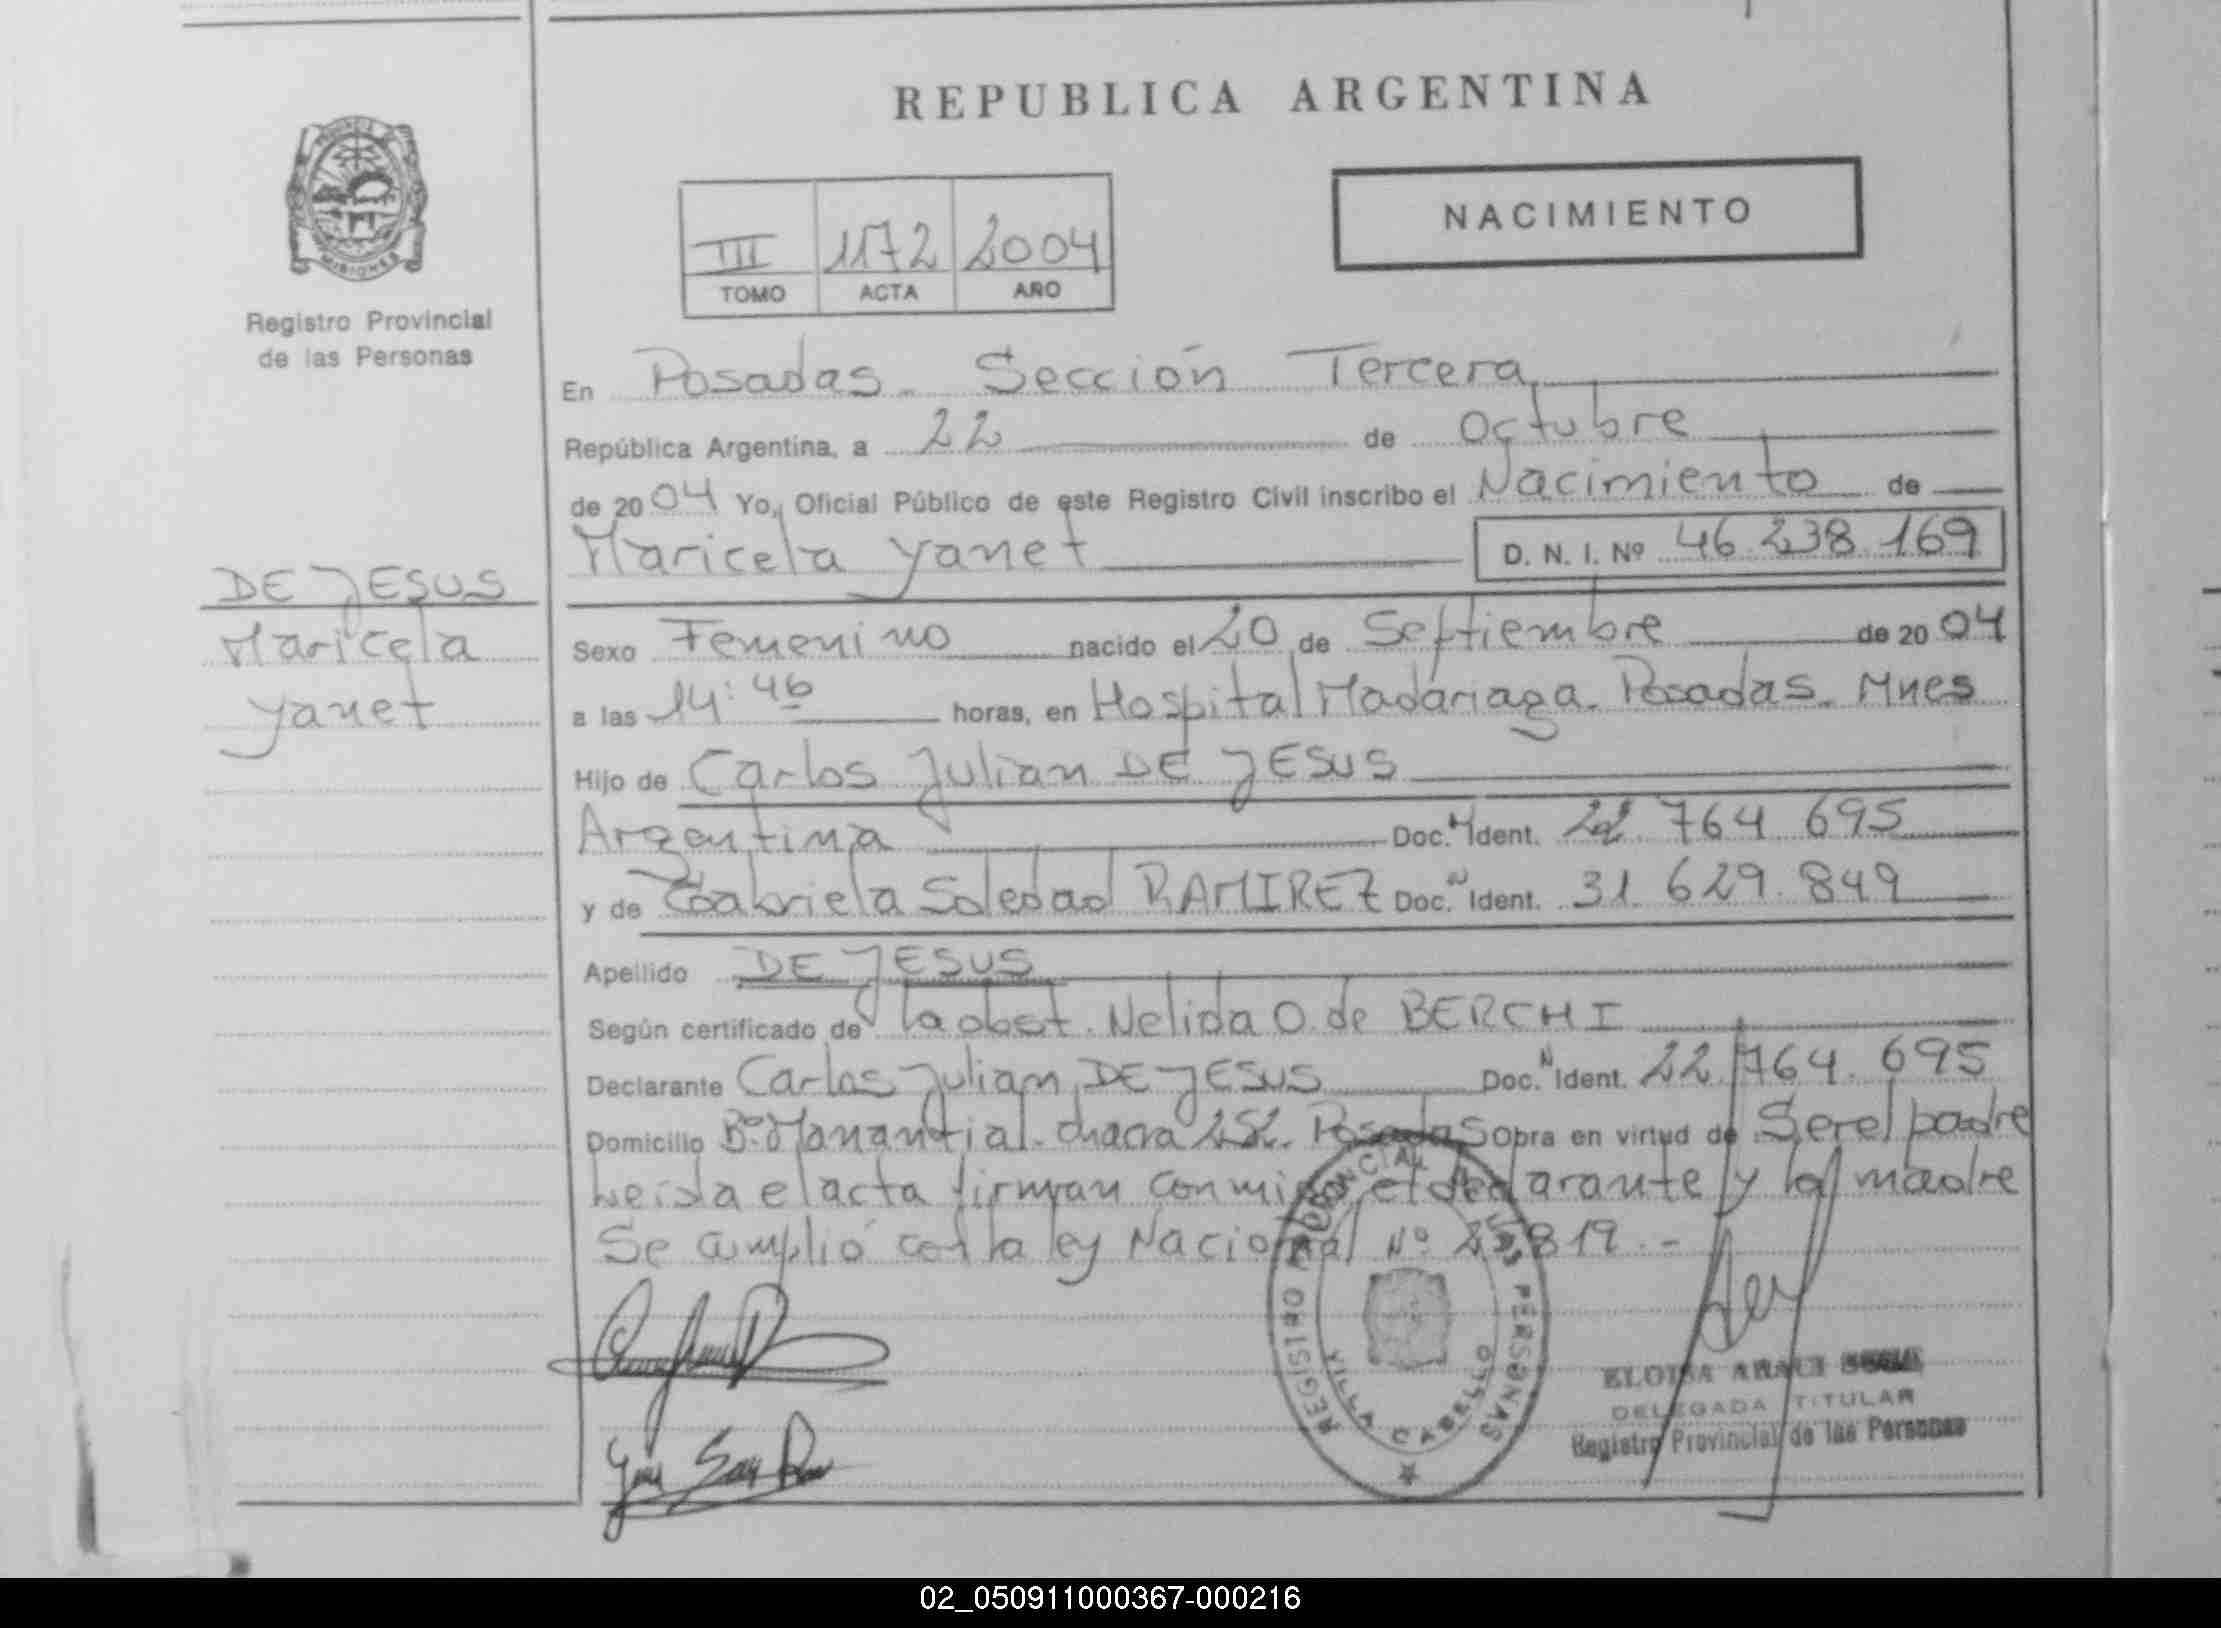 REPUBLICA ARGENTINA
NACIMIENTO
III 1172 2004
TOMO ACTA AÑO
PROVINCIA DE MISIONES
Registro Provincial
de las Personas
DE JESUS
Maricela
Yanet
En Posadas - Sección Tercera
República Argentina, a 22 de Octubre
de 2004 Yo, Oficial Público de este Registro Civil inscribo el Nacimiento de
Maricela Yanet D. N. I. Nº 46.238.169
Sexo Femenino nacido el 20 de Septiembre de 2004
a las 14:46 horas, en Hospital Madariaga. Posadas. Mnes
Hijo de Carlos Julian DE JESUS
Argentina Doc. Ident. 22.764.695
y de Gabriela Soledad RAMIREZ Doc. N Ident. 31.629.849
Apellido DE JESUS
Según certificado de la obst. Nelida O. de BERCHI
Declarante Carlos Julian DE JESUS Doc. N Ident. 22.764.695
Domicilio Bº Manantial. chacra 252. Posadas obra en virtud de Ser el padre
Leida el acta firman conmigo el declarante y la madre
Se cumplió con la ley Nacional Nº 25.819.-
REGISTRO PROVINCIAL DE LAS PERSONAS
VILLA CABELLO
ELOISA ARACI
DELEGADA TITULAR
Registro Provincial de las Personas
02_050911000367-000216